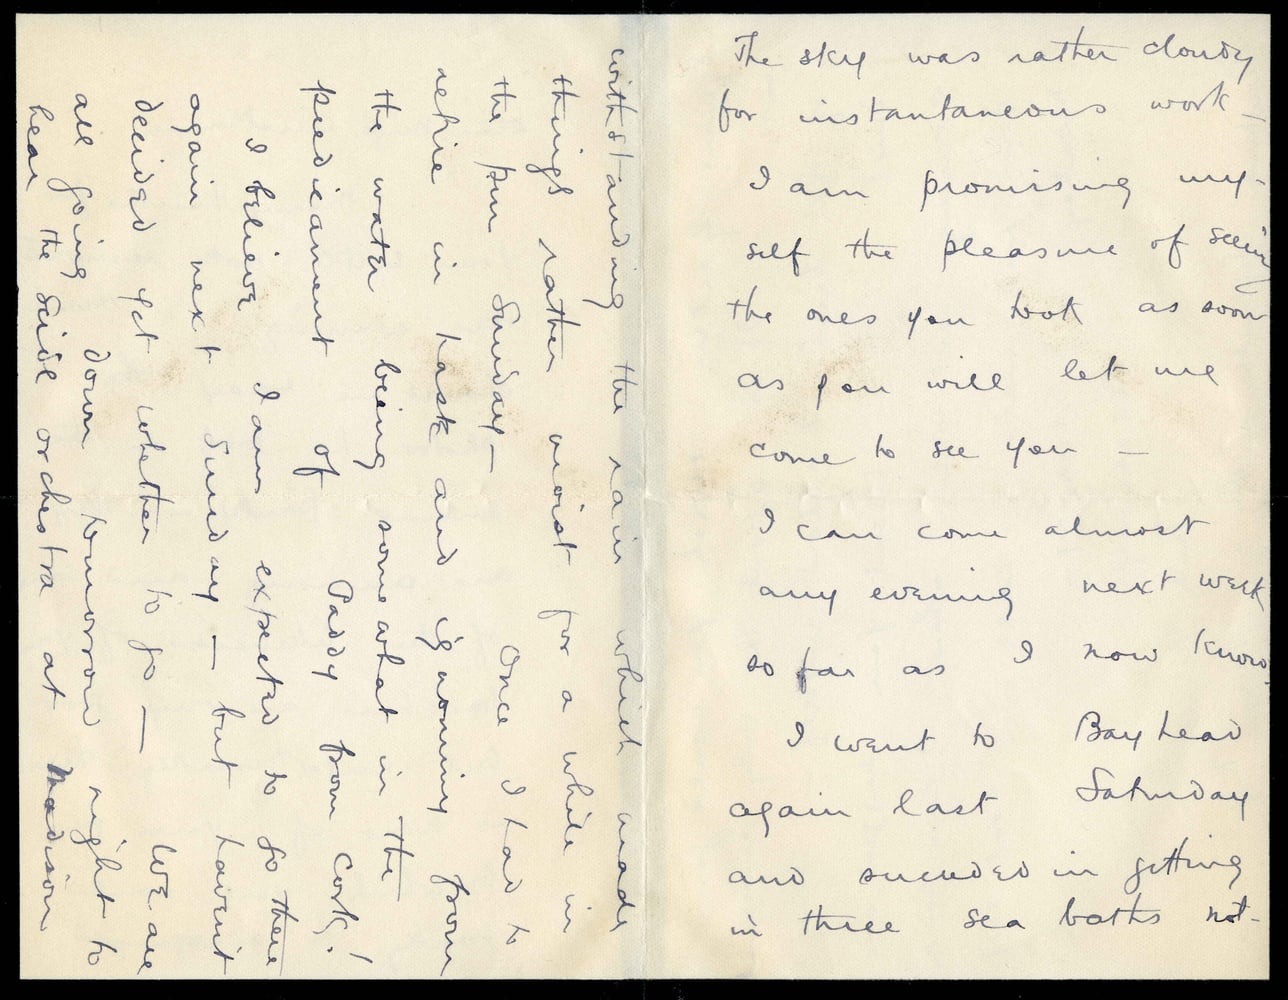 The sky was rather cloudy
for instantaneous work –
I am promising my-
self the pleasure of seeing
the ones you took as soon
as you will let me
come to see you –
I can come almost
any evening next week
so far as I now know.
I went to Bay head
again last Saturday
and succeeded in getting
in three sea baths not-
withstanding the rain which made
things rather moist for a while in
the pm Sunday – Once I had to
retire in haste and ignominy from
the water being somewhat in the
predicament of Paddy from Cork!
I believe I am expected to go there
again next Sunday – but havent
decided yet whether to go – We are
all going down tomorrow night to
hear the Seidl orchestra at Madison